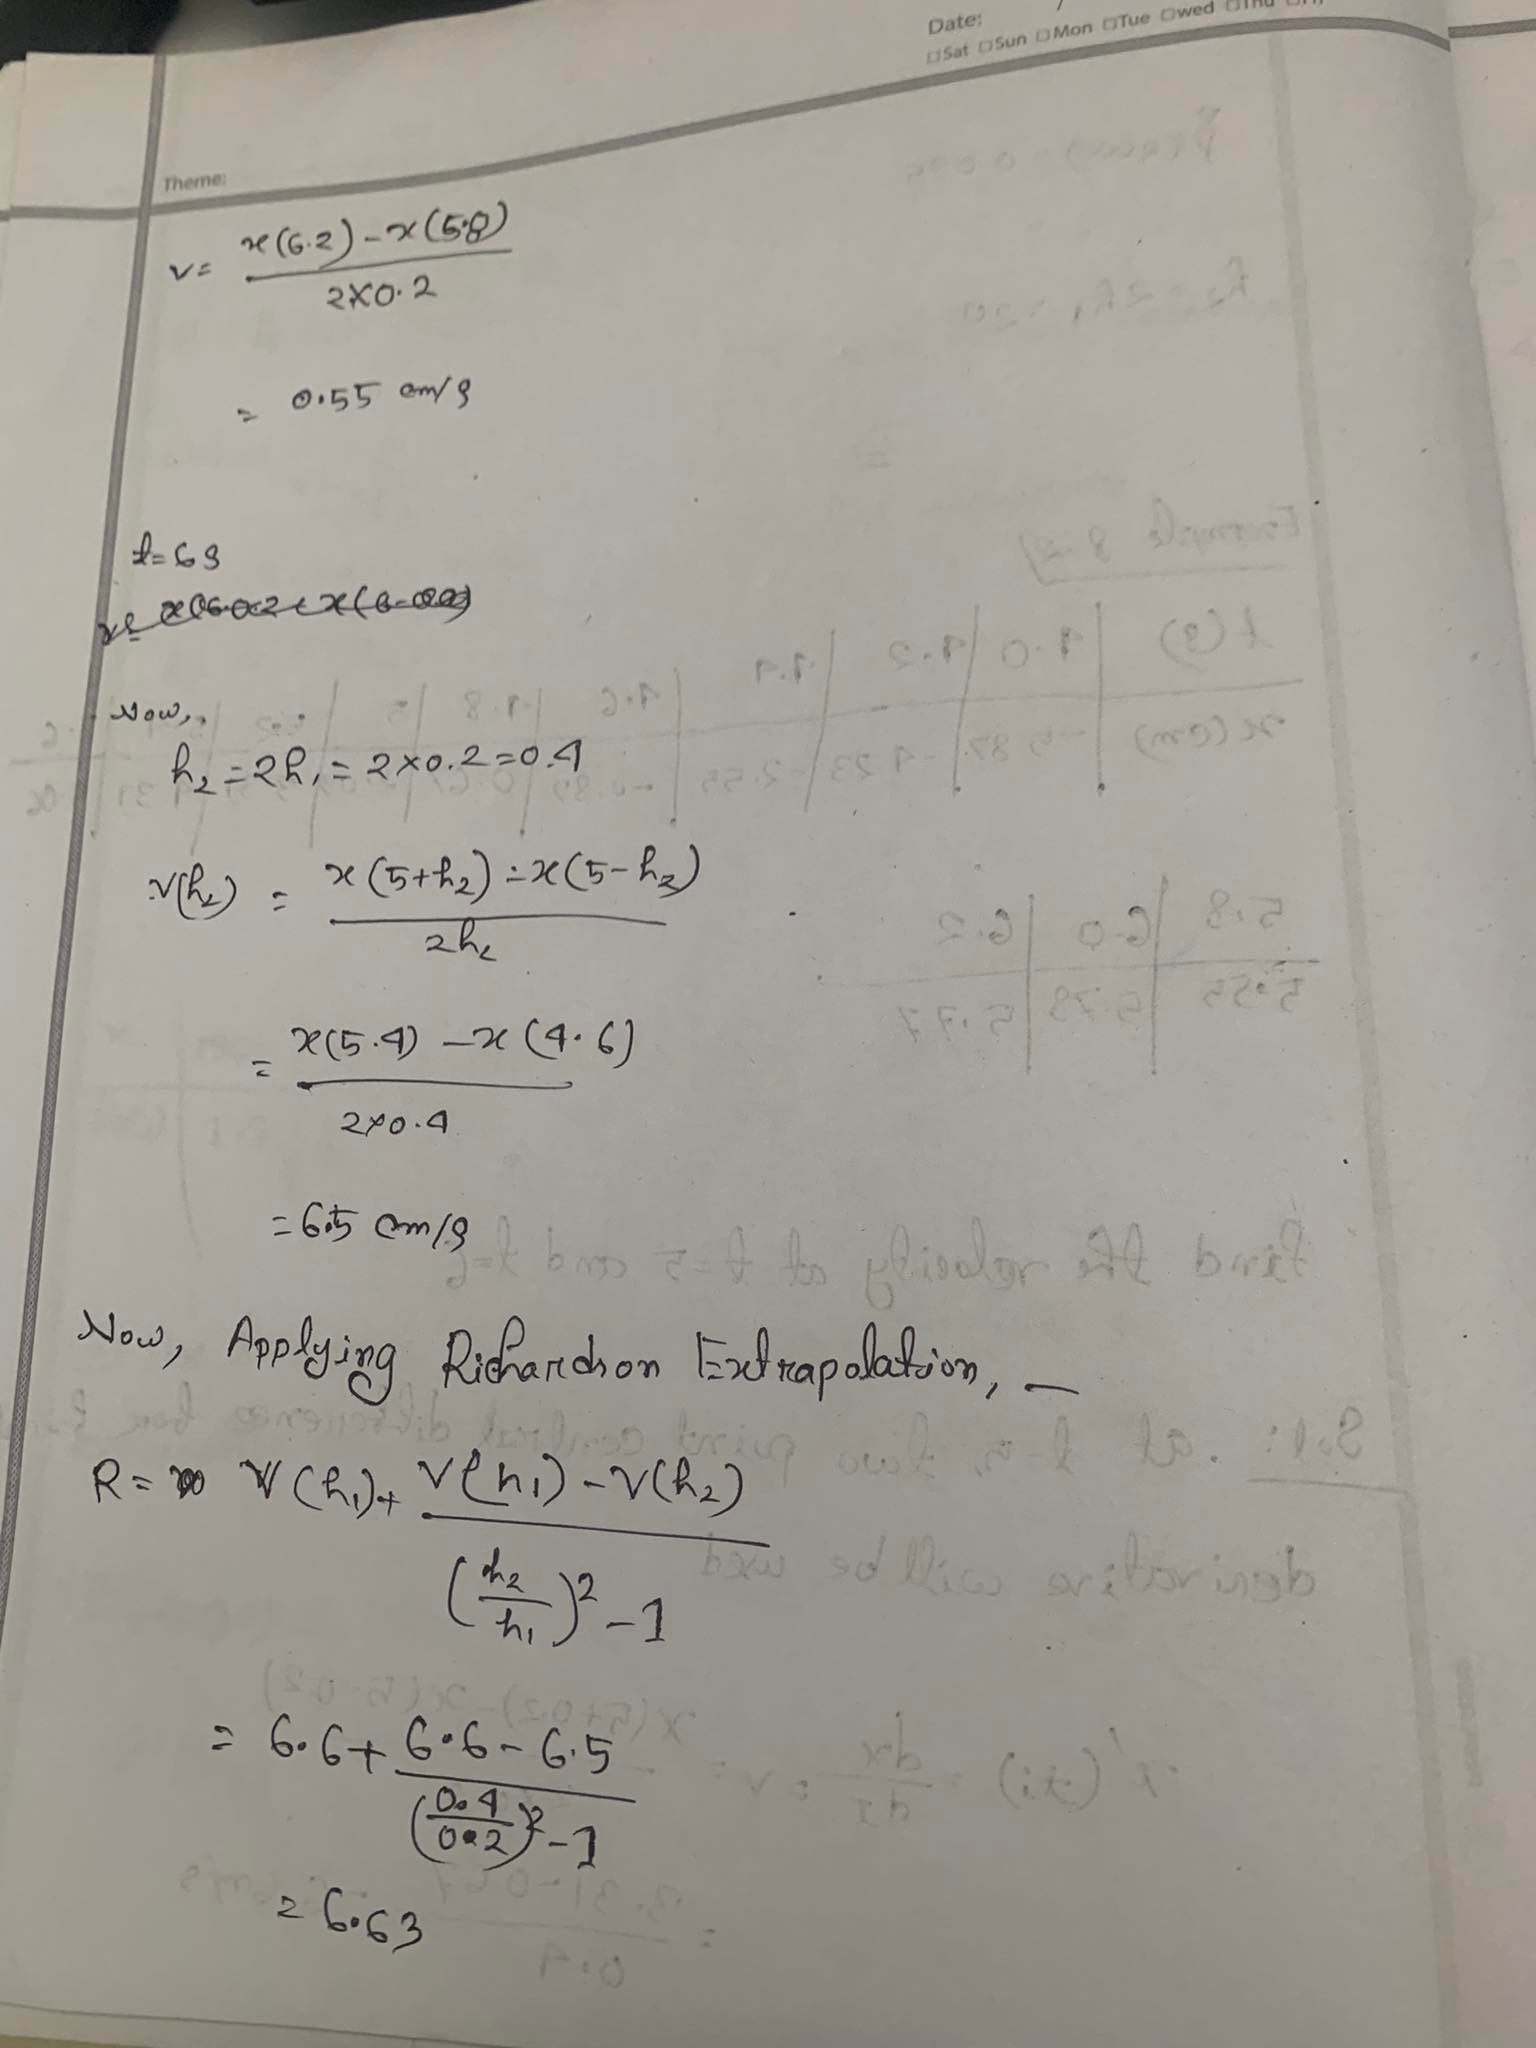 Date:
□Sat □Sun □Mon □Tue □wed
Theme:
v = x(6.2) - x(5.8) / 2×0.2
= 0.55 cm/s
t = 6s
Now,
h₂ = 2h₁ = 2×0.2 = 0.4
v(h₂) = x(5+h₂) - x(5-h₂) / 2h₂
= x(5.4) - x(4.6) / 2×0.4
= 6.5 cm/s
Now, Applying Richardson Extrapolation, —
R = v(h₁) + v(h₁) - v(h₂) / (h₂/h₁)² - 1
= 6.6 + 6.6 - 6.5 / (0.4/0.2)² - 1
= 6.63